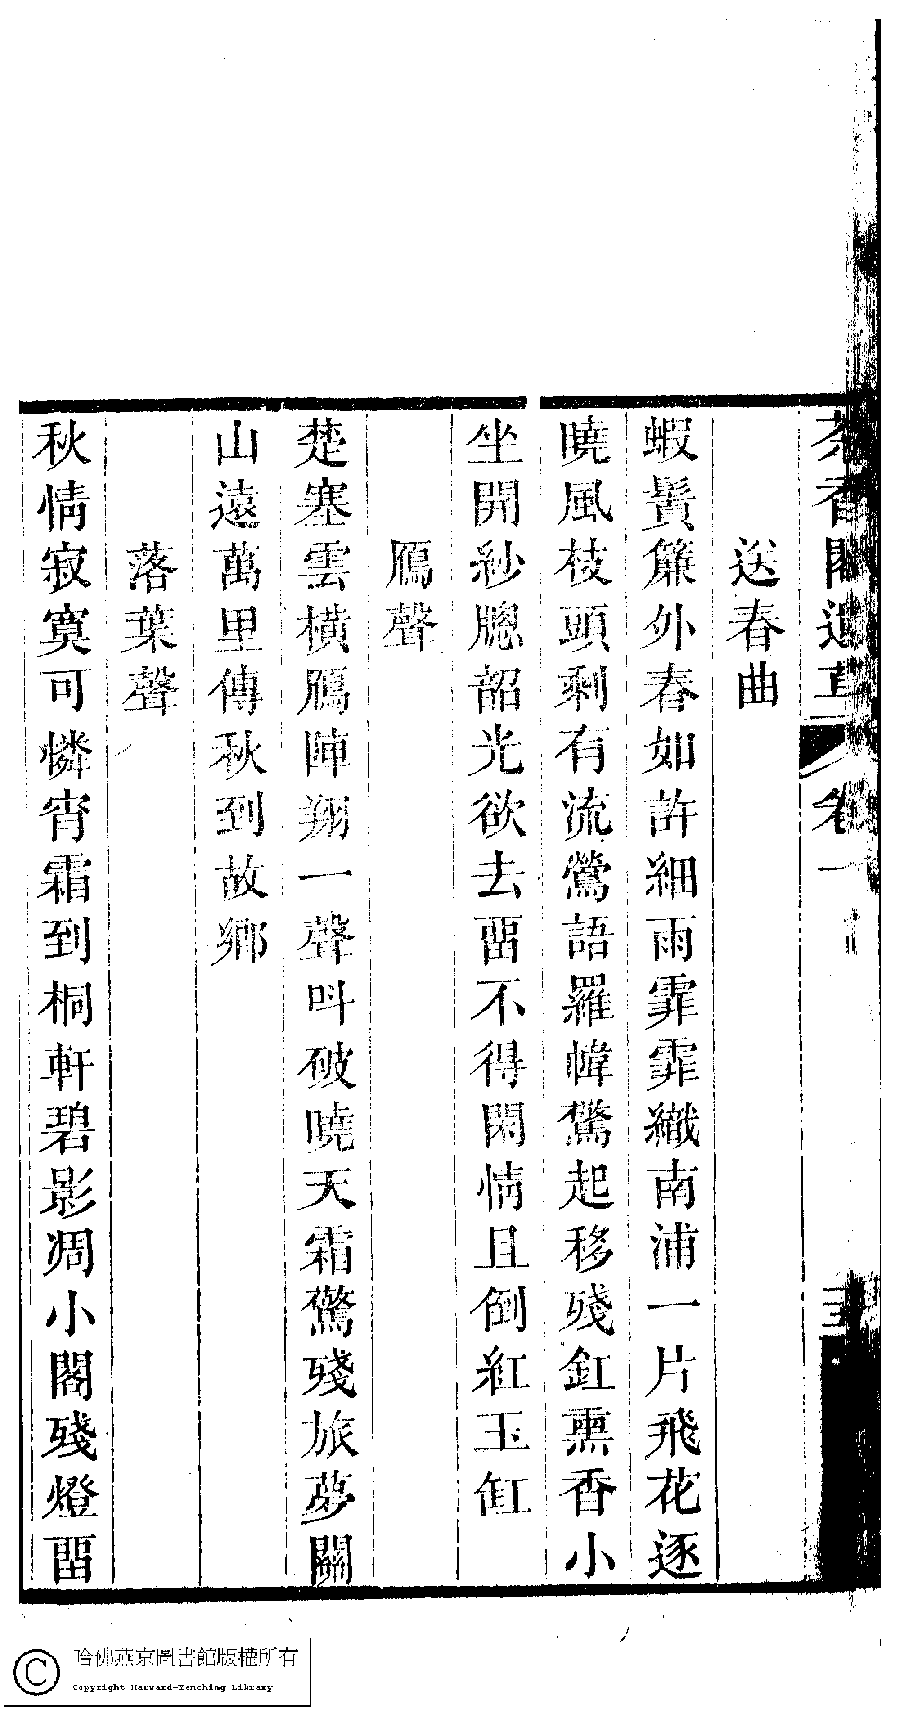 茶香閣遺草 卷一
送春曲
蝦鬚簾外春如許細雨霏霏織南浦一片飛花逐
曉風枝頭剩有流鶯語羅幃驚起移殘釭熏香小
坐開紗牕韶光欲去畱不得閑情且倒紅玉缸
鴈聲
楚塞雲橫鴈陣翔一聲叫破曉天霜驚殘旅夢關
山遠萬里傳秋到故鄉
落葉聲
秋情寂寞可憐宵霜到桐軒碧影凋小閣殘燈畱
哈佛燕京圖書館版權所有
Copyright Harvard-Yenching Library